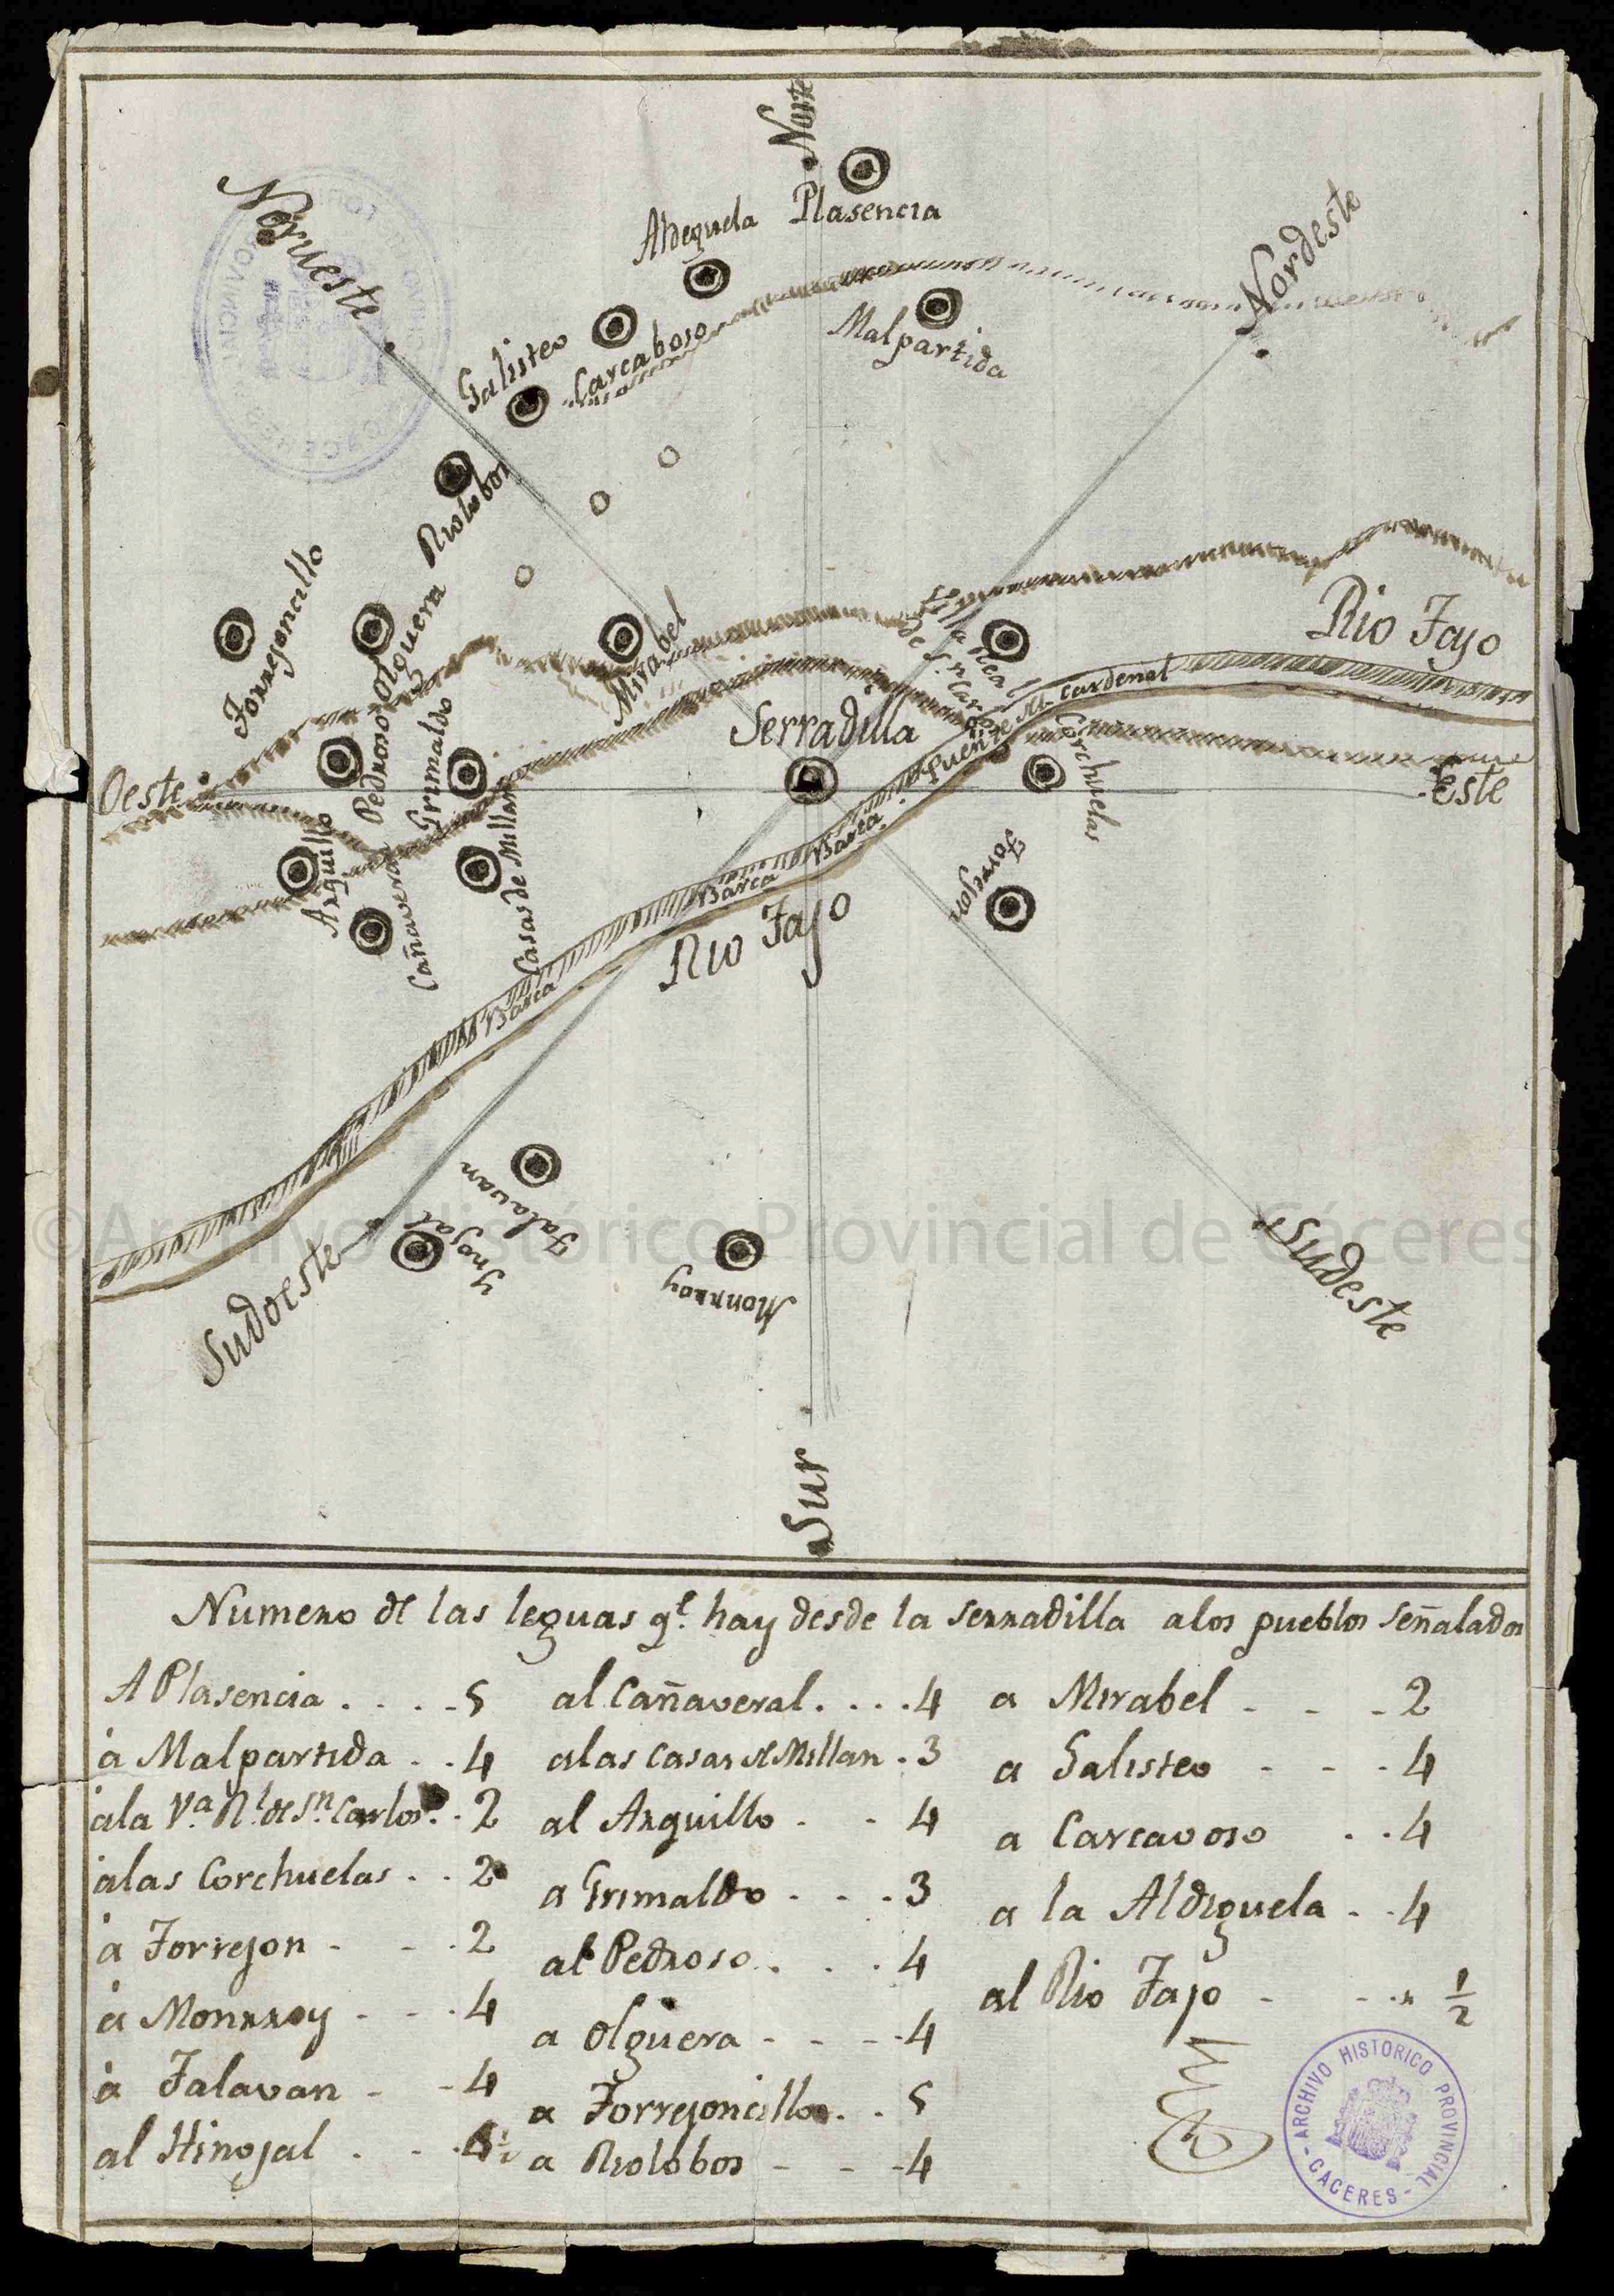 Norte
Norueste
Nordeste
Plasencia
Aldeguela
Malpartida
Galisteo
Carcaboso
Riolobos
Torrejoncillo
Olguera
Pedroso
Grimaldo
Mirabel
Villa Real
de Sn. Carlos
Rio Tajo
Puente del Cardenal
Serradilla
Corchuelas
Oeste
Este
Arquillo
Cañaveral
Casas de Millan
Barca
Barca
Barca
Torrejon
Rio Tajo
Talavan
Ynojal
Monrroy
Sudoeste
Sudeste
Sur
©Archivo Histórico Provincial de Cáceres
Numero de las leguas qe. hay desde la serradilla alos pueblos señalados
A Plasencia . . . . 5
à Malpartida . . 4
ala Va. Rl. de Sn. Carlos . . 2
alas Corchuelas . . 2
à Torrejon - - . 2
à Monrroy - - . 4
à Talavan - - 4
al Hinojal . - . 4½
al Cañaveral . . . . 4
alas Casas de Millan . 3
al Arquillo . . 4
a Grimaldo . . . 3
al Pedroso . . . 4
a Olguera - - - . 4
a Torrejoncillo . . 5
a Riolobos - - - 4
a Mirabel - - - 2
a Galisteo - - - 4
a Carcavoso . . 4
a la Aldeguela . . 4
al Rio Tajo - - . . ½
ARCHIVO HISTORICO PROVINCIAL
- CACERES -